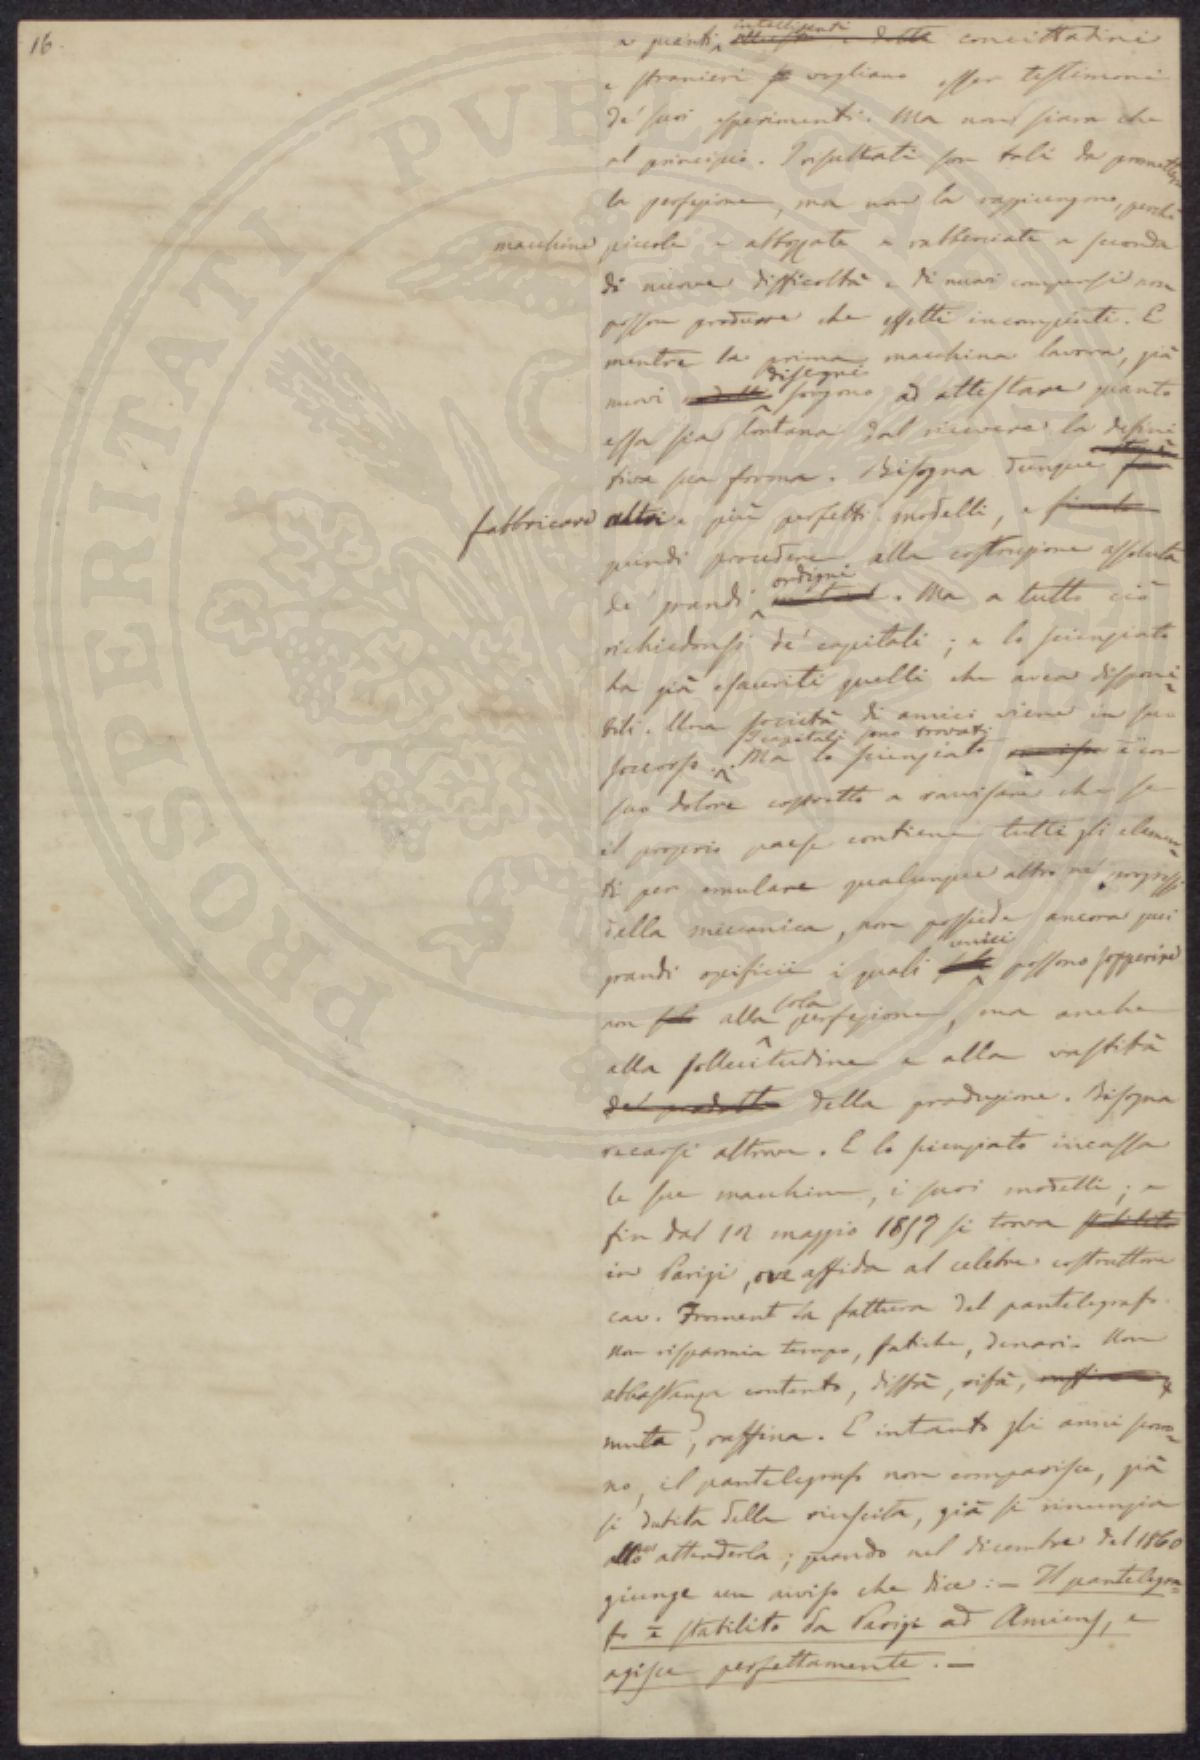 16.
intelligenti
a quanti e dotti concittadini
e stranieri vogliano esser testimoni
de' suoi esperimenti. Ma non siam che
al principio. I risultati son tali da promettere
la perfezione, ma non la raggiungono, perchè
macchine piccole e abbozzate e rabberciate a seconda
di nuove difficoltà e di nuovi compensi non
posson produrre che effetti incompiuti. E
mentre la prima macchina lavora, già
disegni
nuovi modelli sorgono ad attestare quanto
essa sia lontana dal ricevere la defini
tiva sua forma. Bisogna dunque
fabbricare altri e più perfetti modelli, e
quindi procedere alla costruzione assoluta
ordigni
de' grandi . Ma a tutto ciò
richiedonsi de' capitali; e lo scienziato
ha già esauriti quelli che avea disponi
bili. Una società di amici viene in suo
I capitali sono trovati
soccorso. Ma lo scienziato è con
suo dolore costretto a ravvisare che se
il proprio paese contiene tutti gli elemen-
ti per emulare qualunque altro ne' progressi
della meccanica, non possiede ancora quei
unici
grandi opificii i quali possono sopperire
sola
non alla perfezione, ma anche
alla sollecitudine e alla vastità
del prodotto della produzione. Bisogna
recarsi altrove. E lo scienziato incassa
le sue macchine, i suoi modelli; e
fin dal 12 maggio 1857 si trova stabilito
in Parigi, ove affida al celebre costruttore
cav. Froment la fattura del pantelegrafo.
Non risparmia tempo, fatiche, denari. Non
abbastanza contento, disfà, rifà, raffina
muta, raffina. E intanto gli anni scorro-
no, il pantelegrafo non comparisce, già
si dubita della riuscita, già si rinunzia
attenderla; quando nel dicembre del 1860
giunge un avviso che dice: — Il pantelegra=
fo è stabilito da Parigi ad Amiens, e
agisce perfettamente. —
PROSPERITATI PVBLICAE